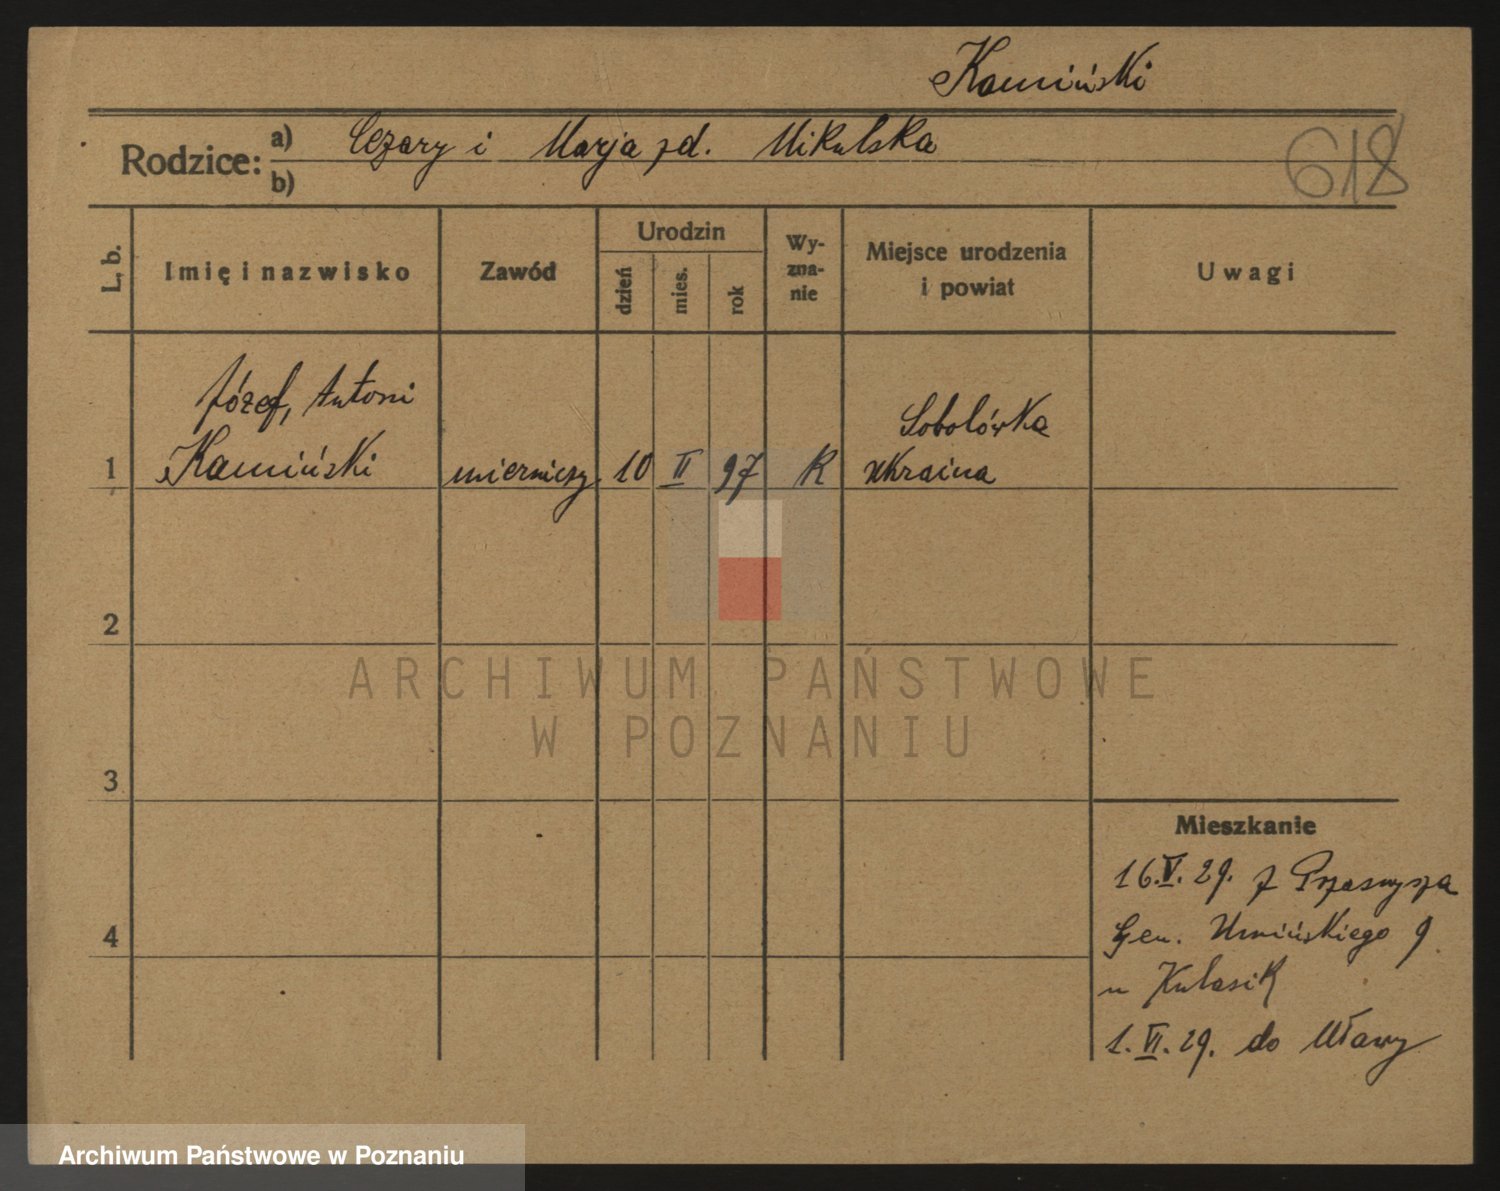 Kamiński
Rodzice: a) Cezary i Marja zd. Mikulska
b)
618
L. b.
Imię i nazwisko
Zawód
Urodzin
dzień
mies.
rok
Wy-
zna-
nie
Miejsce urodzenia
i powiat
Uwagi
Józef, Antoni
1 Kamiński mierniczy 10 II 97 R
Sobolówka
Ukraina
2
3
4
Mieszkanie
16.V.29. z Przasnysza
Gen. Umińskiego 9
u Kulasik
1.VI.29. do Mławy
ARCHIWUM PAŃSTWOWE
W POZNANIU
Archiwum Państwowe w Poznaniu